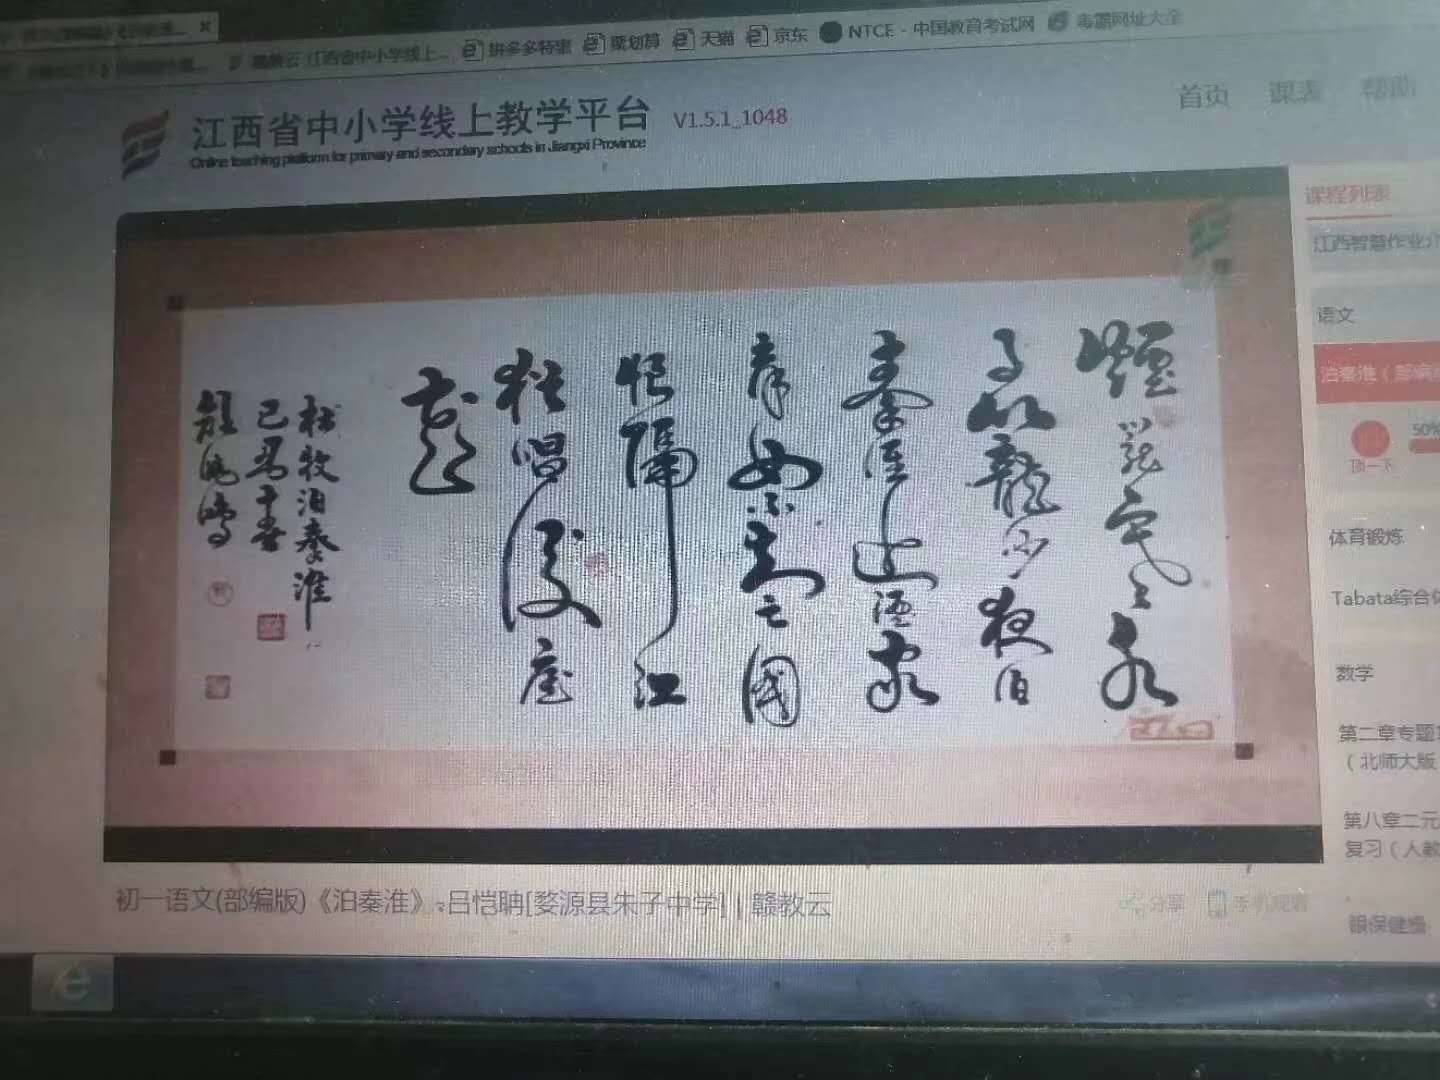 拼多多特惠 聚划算 天猫 京东 NTCE - 中国教育考试网 毒霸网址大全
江西省中小学线上教学平台 V1.5.1_1048
Online teaching platform for primary and secondary schools in Jiangxi Province
首页 课表 帮助
课程列表
江西智慧作业介
语文
泊秦淮（部编
50%
顶一下
体育锻炼
Tabata综合体
数学
第二章专题
（北师大版
第八章二元
复习（人教
眼保健操
煙籠寒水
月籠沙夜泊
秦淮近酒家
商女不知亡國
恨隔江
猶唱後庭
花
杜牧泊秦淮
初一语文(部编版)《泊秦淮》-吕恺聃[婺源县朱子中学] | 赣教云
分享 手机观看